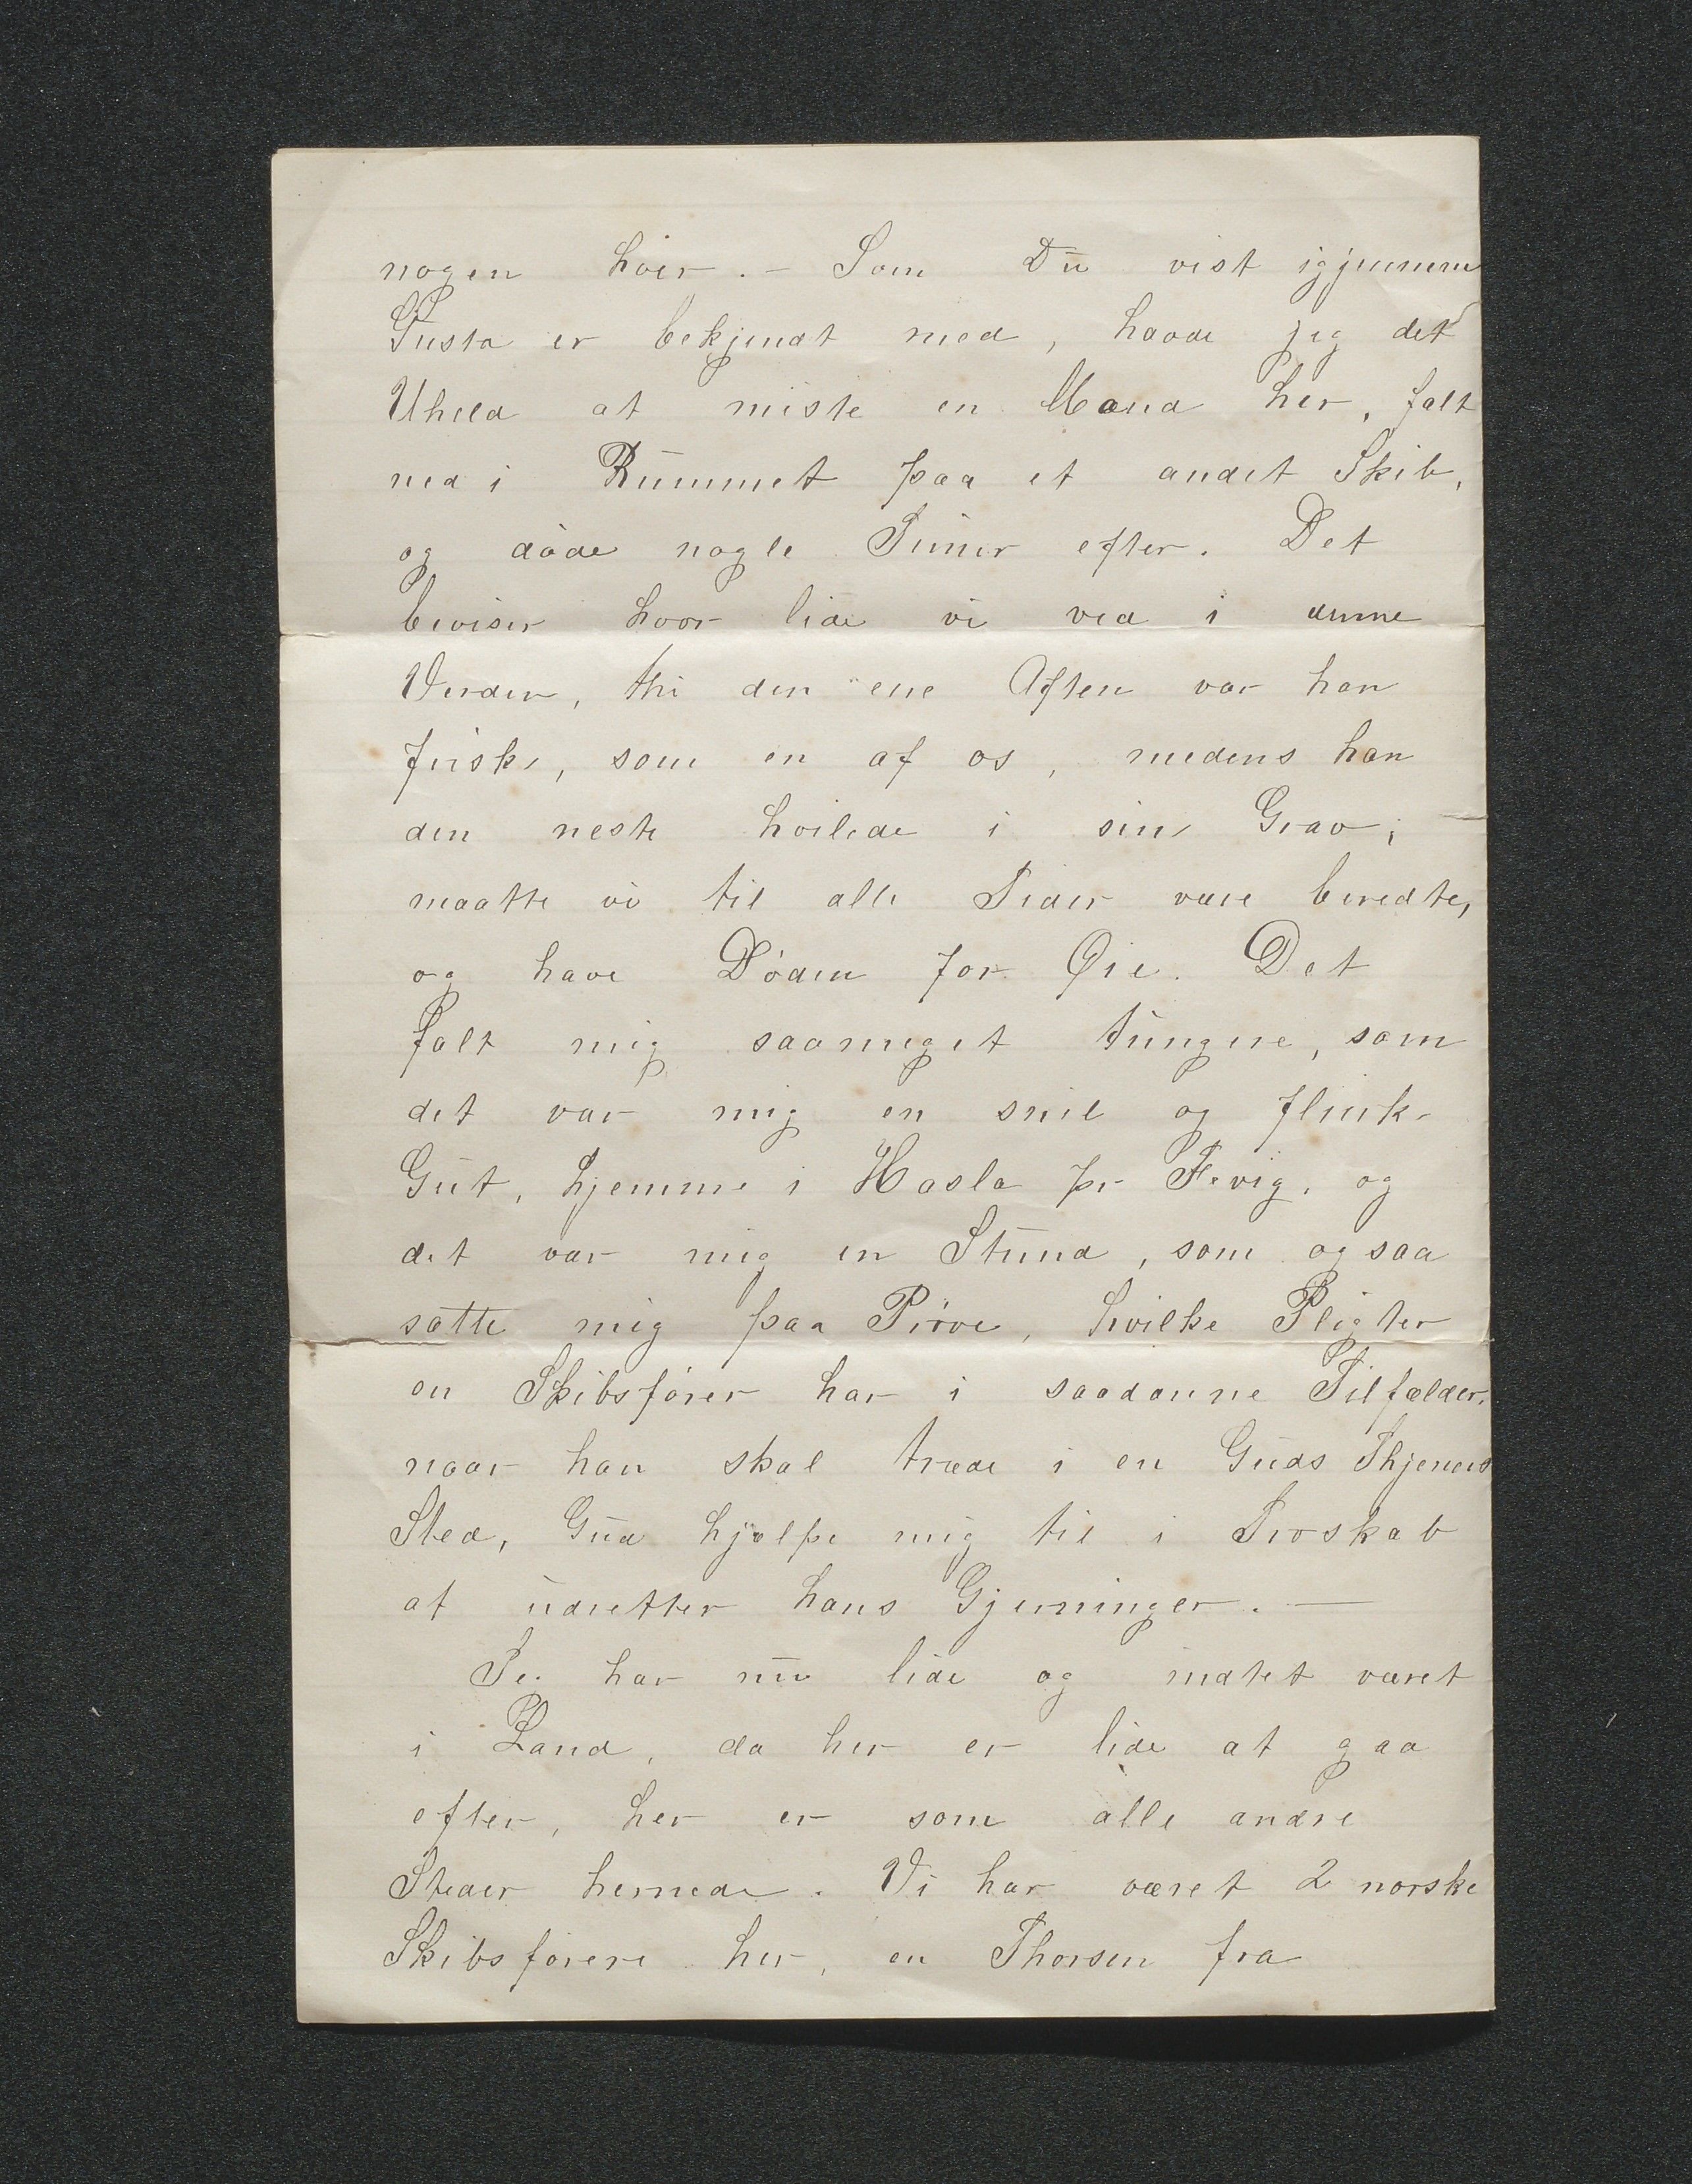 nogen hver. – Som Du vist igjennem
Gusta er bekjendt med, havde jeg det
Uheld at miste en Mand her, falt
ned i Rummet paa et andet Skib,
og døde nogle Timer efter. Det
beviser hvor lide vi ved i denne
Verden, thi den ene Aften var han
frisk, som en af os, medens han
den neste hvilede i sin Grav;
maatte vi til alle Tider være beredte,
og have Døden for Øie. Det
falt mig saameget tungere, som
det var mig en snil og flink
Gut, hjemme i Hasla pr Fevig, og
det var mig en Stund, som ogsaa
satte mig paa Prøve, hvilke Pligter
en Skibsfører har i saadanne Tilfælder,
naar han skal træde i en Guds Thjeners
Sted, Gud hjælpe mig til i Troskab
at udretter hans Gjerninger. —
Jeg har nu lide og indtet været
i Land, da her er lide at gaa
efter, her er som alle andre
Steder hernede. Vi har været 2 norske
Skibsførere her, en Thorsen fra